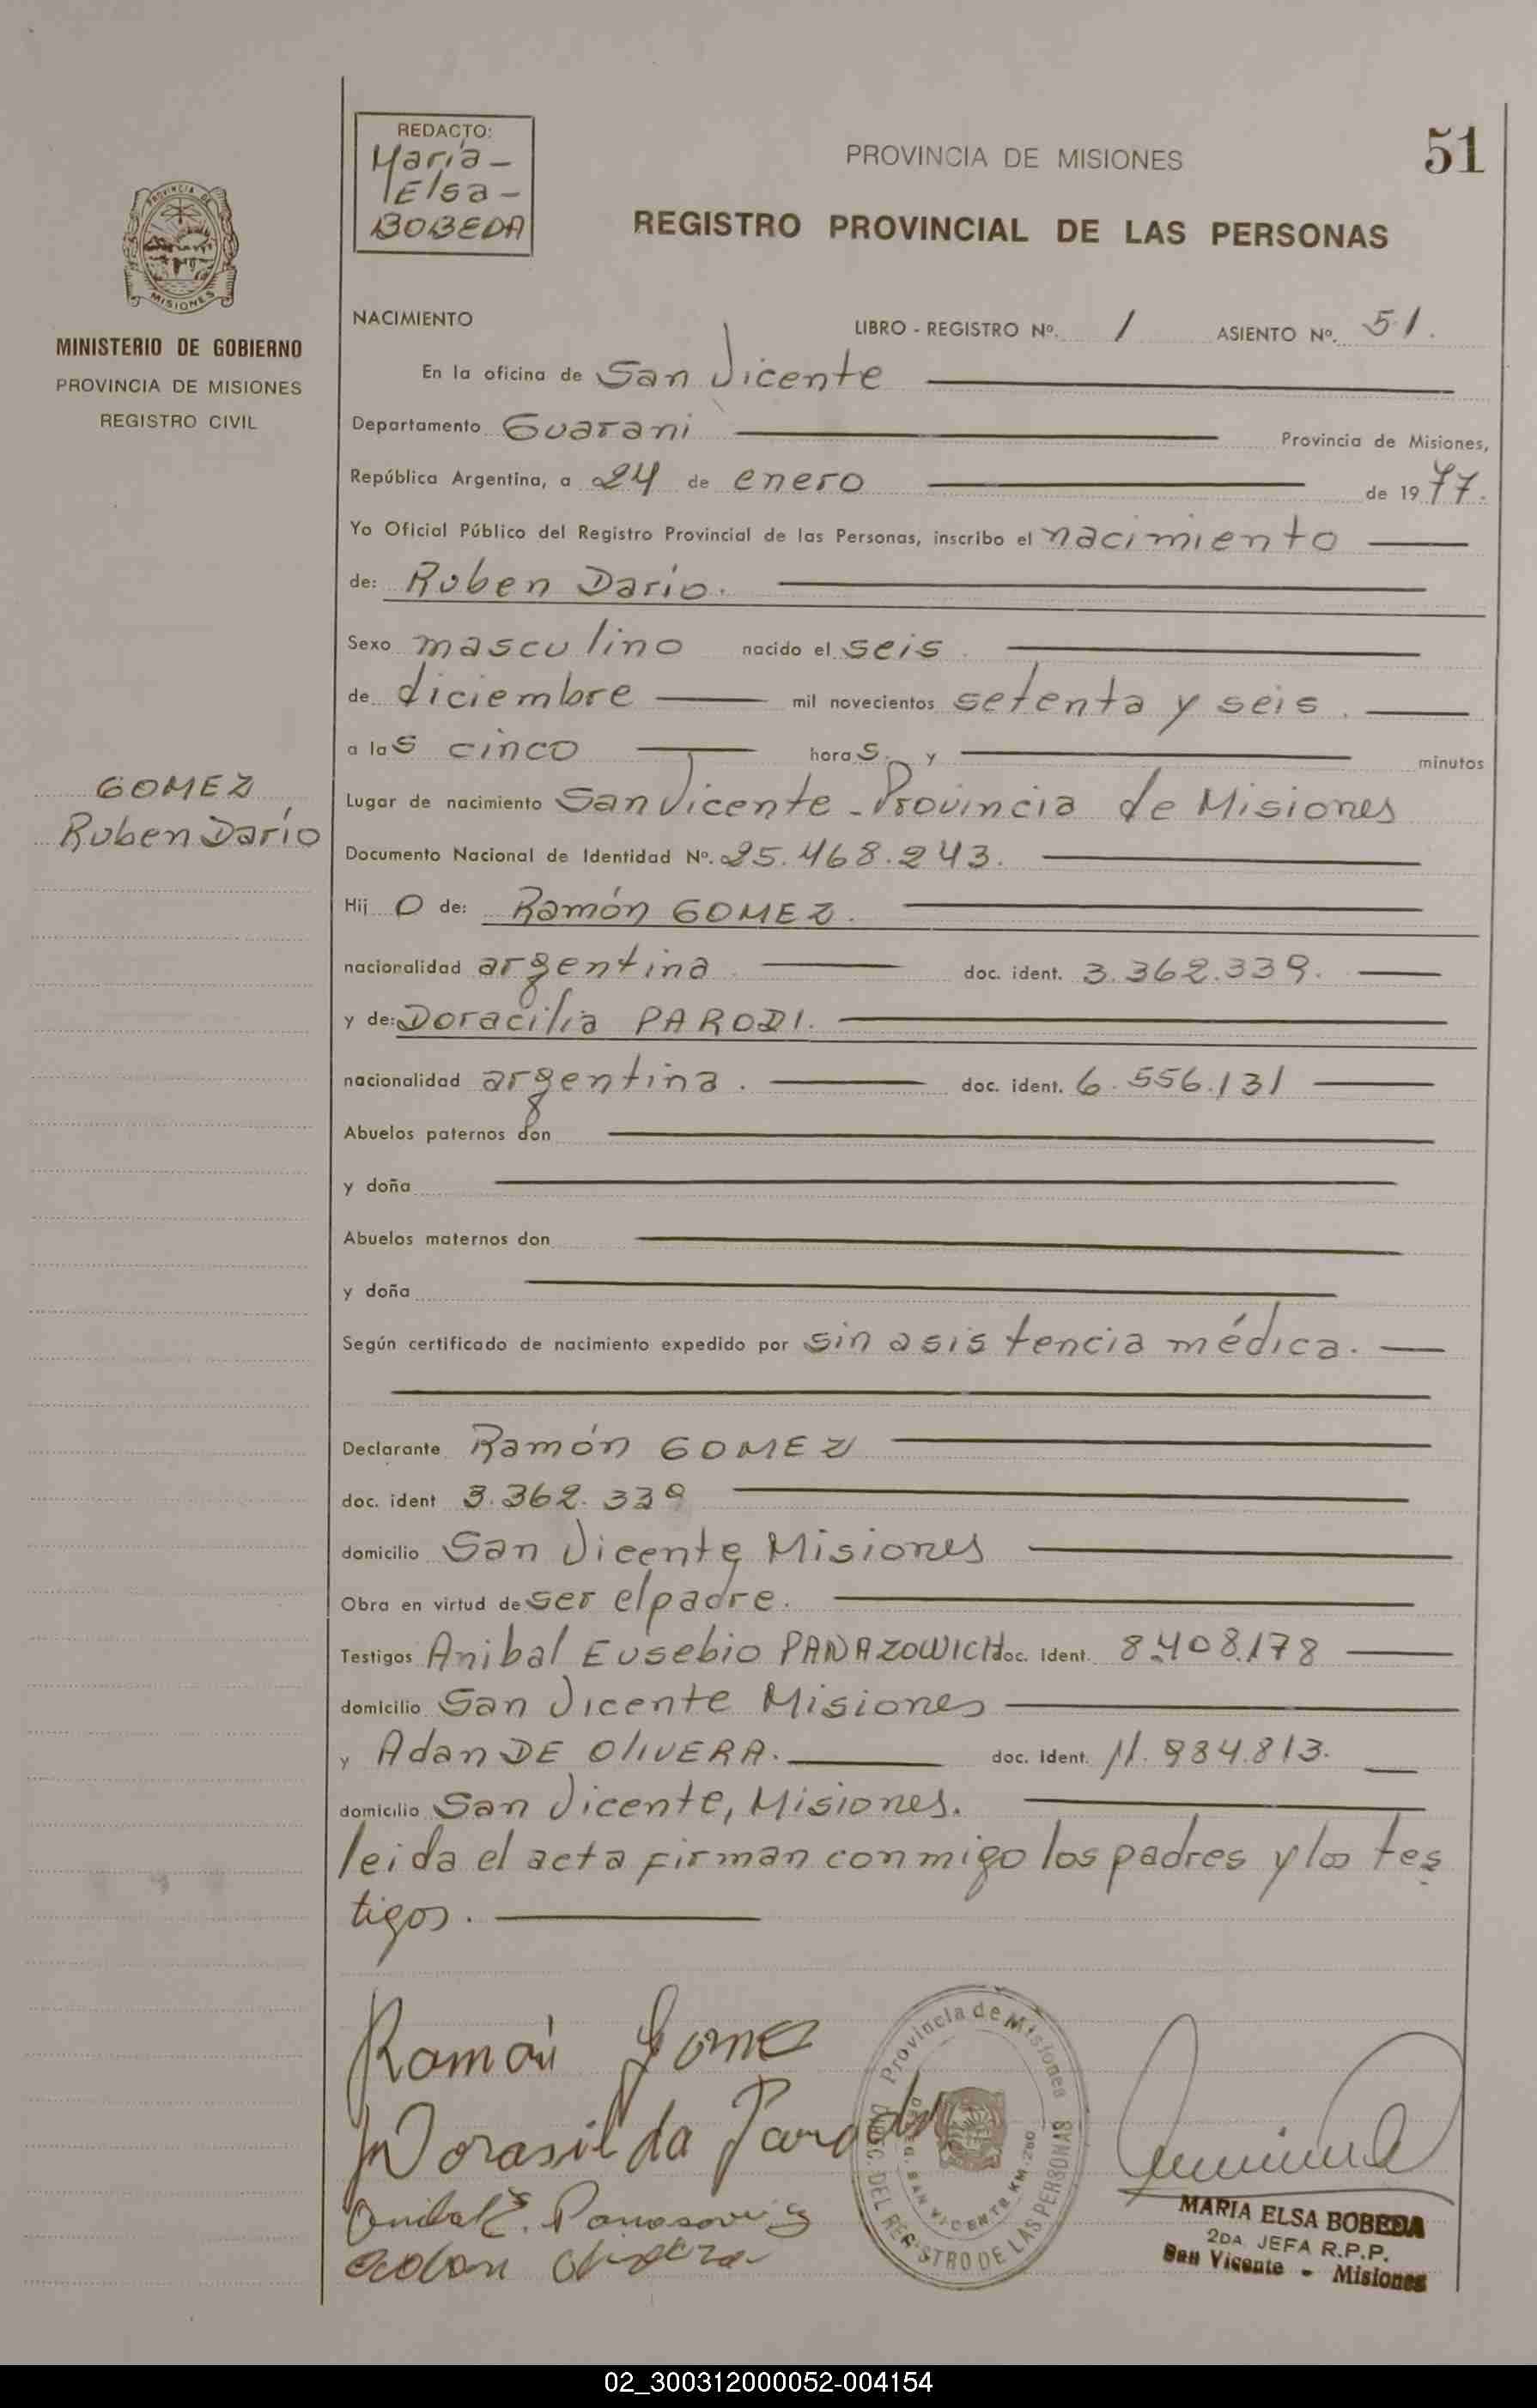 REDACTO:
María -
Elsa -
BOBEDA
PROVINCIA DE MISIONES
51
REGISTRO PROVINCIAL DE LAS PERSONAS
PROVINCIA DE
MISIONES
MINISTERIO DE GOBIERNO
PROVINCIA DE MISIONES
REGISTRO CIVIL
GOMEZ
Ruben Darío
NACIMIENTO LIBRO - REGISTRO Nº. 1 ASIENTO Nº. 51.
En la oficina de San Vicente
Departamento Guarani Provincia de Misiones,
República Argentina, a 24 de enero de 1977.
Yo Oficial Público del Registro Provincial de las Personas, inscribo el nacimiento
de: Ruben Dario.
Sexo masculino nacido el seis
de diciembre mil novecientos setenta y seis.
a las cinco horas y minutos
Lugar de nacimiento San Vicente - Provincia de Misiones
Documento Nacional de Identidad Nº. 25.468.243.
Hij o de: Ramón GOMEZ.
nacionalidad argentina doc. ident. 3.362.339.
y de: Doracilia PARODI.
nacionalidad argentina. doc. ident. 6.556.131
Abuelos paternos don
y doña
Abuelos maternos don
y doña
Según certificado de nacimiento expedido por sin asistencia médica.
Declarante Ramón GOMEZ
doc. ident 3.362.339
domicilio San Vicente Misiones
Obra en virtud de ser el padre.
Testigos Anibal Eusebio PANAZOWICH doc. Ident. 8.408.178
domicilio San Vicente Misiones
y Adan DE OlIVERA. doc. Ident. 11.984.813.
domicilio San Vicente, Misiones.
leida el acta firman conmigo los padres y los tes
tigos.
Ramón Gomez
Dorasilda Parodi
Provincia de Misiones
DIREC. DEL REGISTRO DE LAS PERSONAS
DELEG. SAN VICENTE KM. 280
MARIA ELSA BOBEDA
2DA JEFA R.P.P.
San Vicente - Misiones
02_300312000052-004154